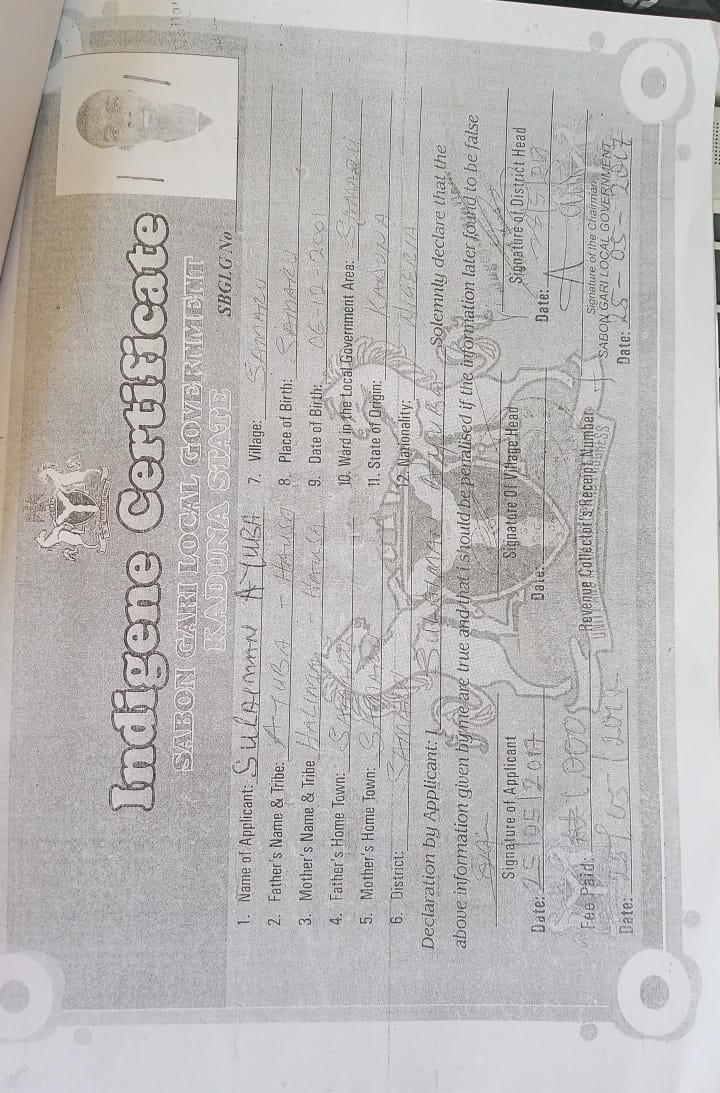 Indigene Certificate
SABON GARI LOCAL GOVERNMENT
KADUNA STATE
SBGLG No
1. Name of Applicant: SULAIMAN AYUBA
2. Father's Name & Tribe: AYUBA - HAUSA
3. Mother's Name & Tribe Halima - HAUSA
4. Father's Home Town: SAMARU
5. Mother's Home Town: SAMARU
6. District: SAMARU
7. Village: SAMARU
8. Place of Birth: SAMARU
9. Date of Birth: 06-12-2001
10. Ward in the Local Government Area: SAMARU
11. State of Origin: KADUNA
12. Nationality: NIGERIA
Declaration by Applicant: I SULAIMAN AYUBA Solemnly declare that the
above information given by me are true and that i should be penalised if the information later found to be false
Signature of Applicant
Date: 25/05/2017
Signature Of Village Head
Date:
Signature of District Head
Date:
Fee Paid: 1,000
Date:
Revenue Collector's Receipt Number
Signature of the Chairman
SABON GARI LOCAL GOVERNMENT
Date: 25-05-2017